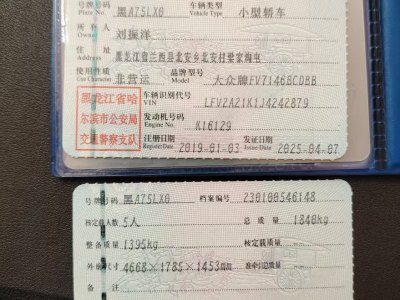 号牌号码 黑A75LX0 车辆类型 小型轿车
Plate No. Vehicle Type
所有人 刘振洋
Owner
住址 黑龙江省兰西县北安乡北安村梁家崴屯
Address
使用性质 非营运 品牌型号 大众牌FV7146BCDBB
Use Character
黑龙江省哈尔滨市公安局交通警察支队
车辆识别代号 LFV2A21K1J4242879
VIN
发动机号码 K16129
Engine No.
注册日期 2019-01-03 发证日期 2025-04-07
Register Date Issue Date
号牌号码 黑A75LX0 档案编号 230100546148
核定载人数 5人 总质量 1840kg
整备质量 1395kg 核定载质量
外廓尺寸 4668×1785×1453mm 准牵引总质量
备注